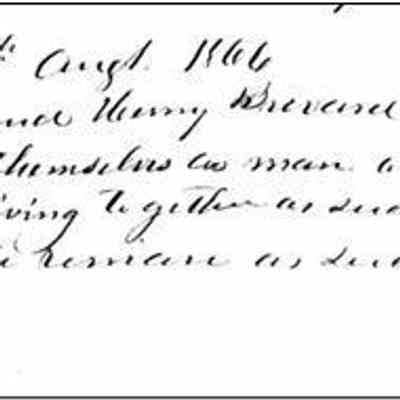 th Augt. 1866
and Henry Brevard
themselves as man a
iving together as suc
remain as suc